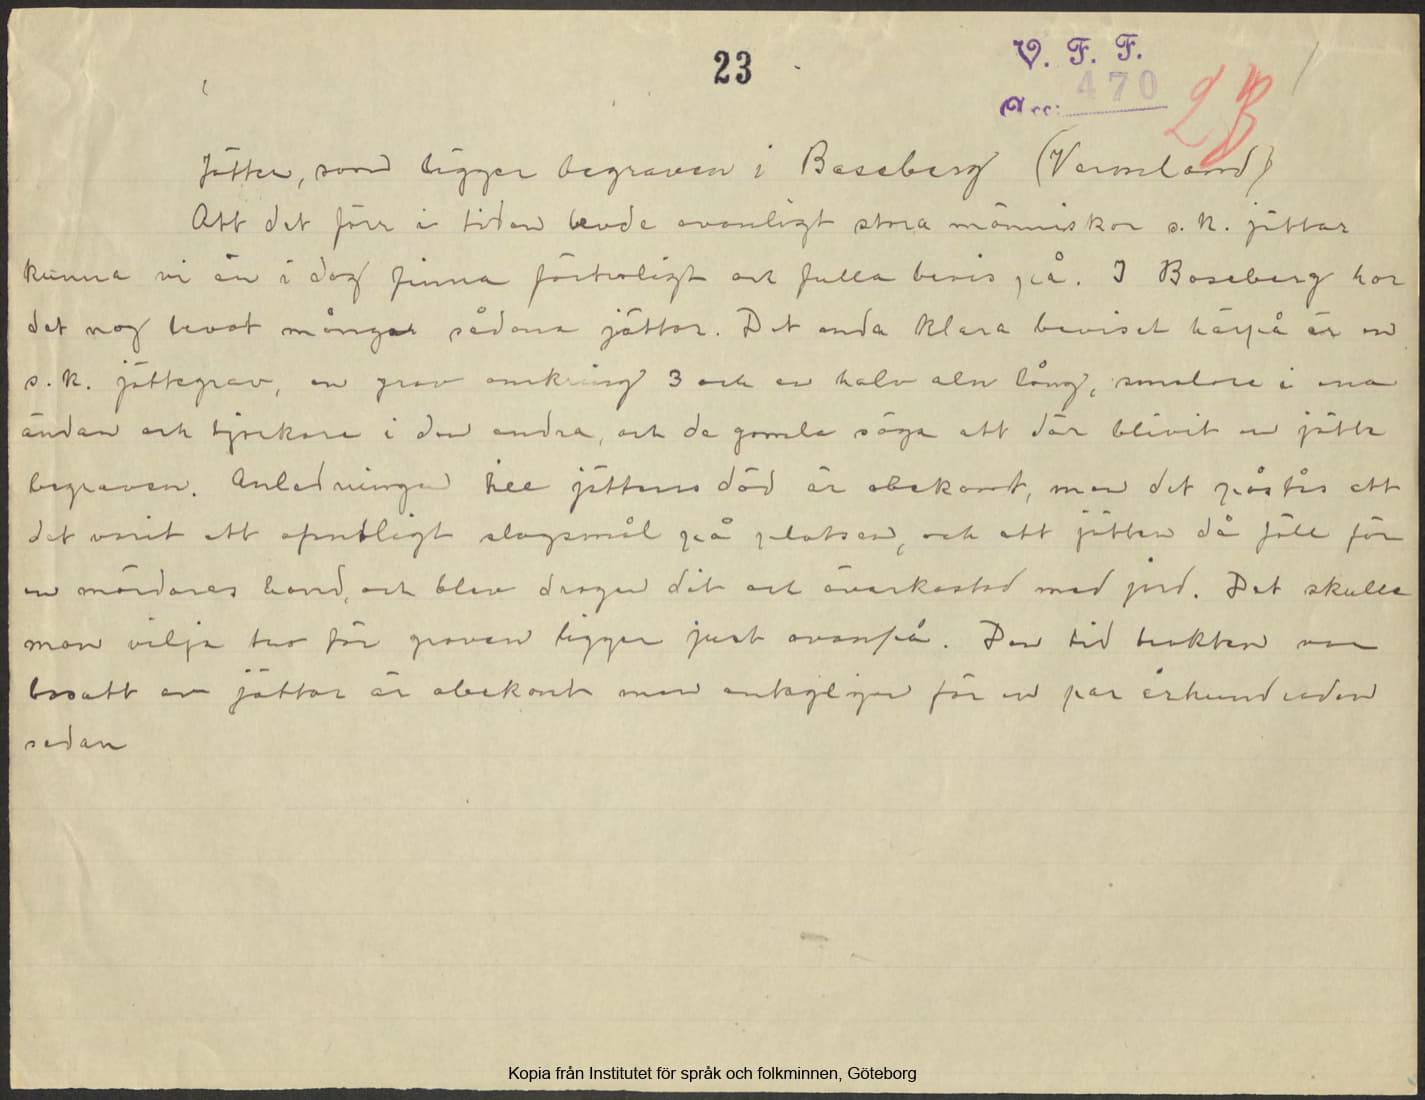 23
V. F. F.
Acc: 470
23
Jätten, som ligger begraven i Baseberg (Vermeland)
Att det förr i tiden levde ovanligt stora människor s.k. jättar
kunna vi än i dag finna förtroligt och fulla bevis på. I Boseberg har
det nog levat många sådana jättar. Det enda klara beviset härpå är en
s.k. jättegrav, en grav omkring 3 och en halv aln lång, smalare i ena
ändan och tjockare i den andra, och de gamla säga att där blivit en jätte
begraven. Anledningen till jättens död är obekant, men det påstås att
det varit ett ofantligt slagsmål på platsen, och att jätten då föll för
en mördares hand, och blev dragen dit och överkastad med jord. Det skulle
man vilja tro för graven ligger just ovanpå. Den tid trakten var
besatt av jättar är obekant men antagligen för en par århundraden
sedan
Kopia från Institutet för språk och folkminnen, Göteborg